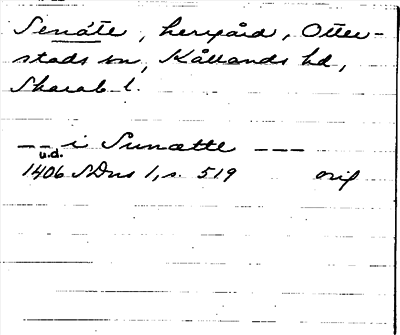 Senäte, herrgård, Otter-
stads sn, Kållands hd,
Skarab. l.
-- i Sunætte ---
u.d.
1406 SDns 1, s. 519 orig